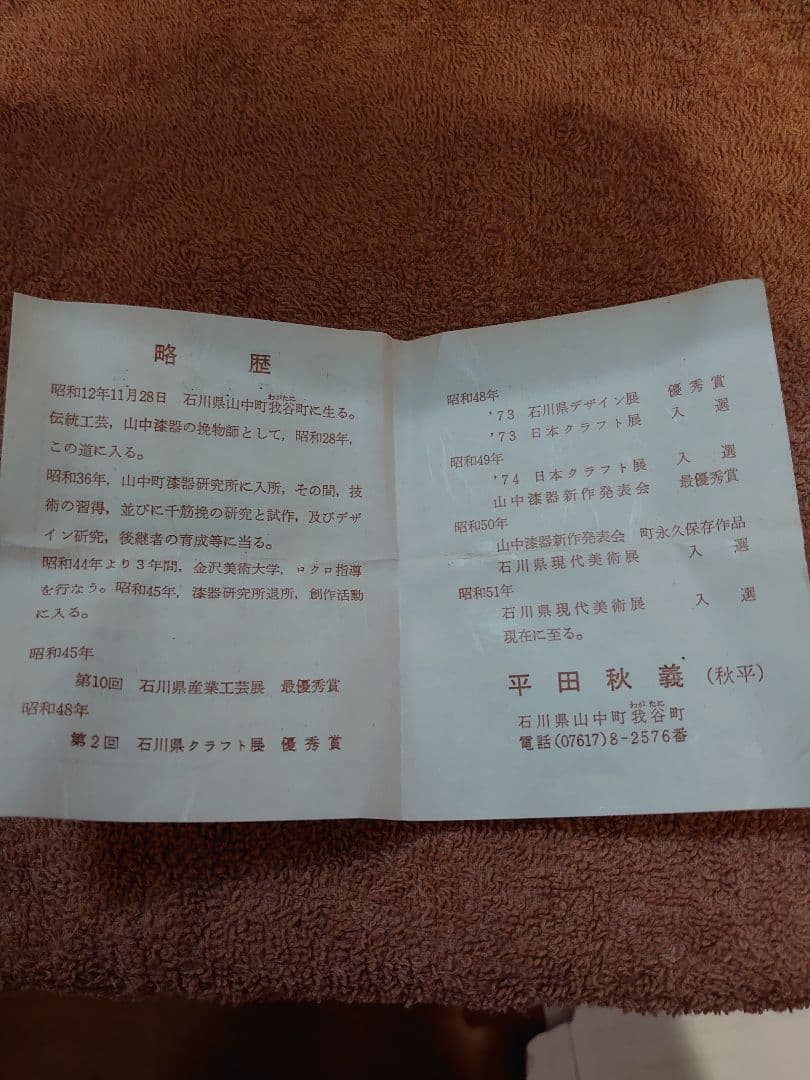 略歴
昭和12年11月28日 石川県山中町我谷町に生る。
わがたに
伝統工芸，山中漆器の挽物師として，昭和28年，
この道に入る。
昭和36年，山中町漆器研究所に入所，その間，技
術の習得，並びに千筋挽の研究と試作，及びデザ
イン研究，後継者の育成等に当る。
昭和44年より3年間，金沢美術大学，ロクロ指導
を行なう。昭和45年，漆器研究所退所，創作活動
に入る。
昭和45年
第10回 石川県産業工芸展 最優秀賞
昭和48年
第2回 石川県クラフト展 優秀賞
昭和48年
'73 石川県デザイン展 優秀賞
'73 日本クラフト展 入選
昭和49年
'74 日本クラフト展 入選
山中漆器新作発表会 最優秀賞
昭和50年
山中漆器新作発表会 町永久保存作品
石川県現代美術展 入選
昭和51年
石川県現代美術展 入選
現在に至る。
平田秋義（秋平）
わがたに
石川県山中町我谷町
電話(07617)8-2576番